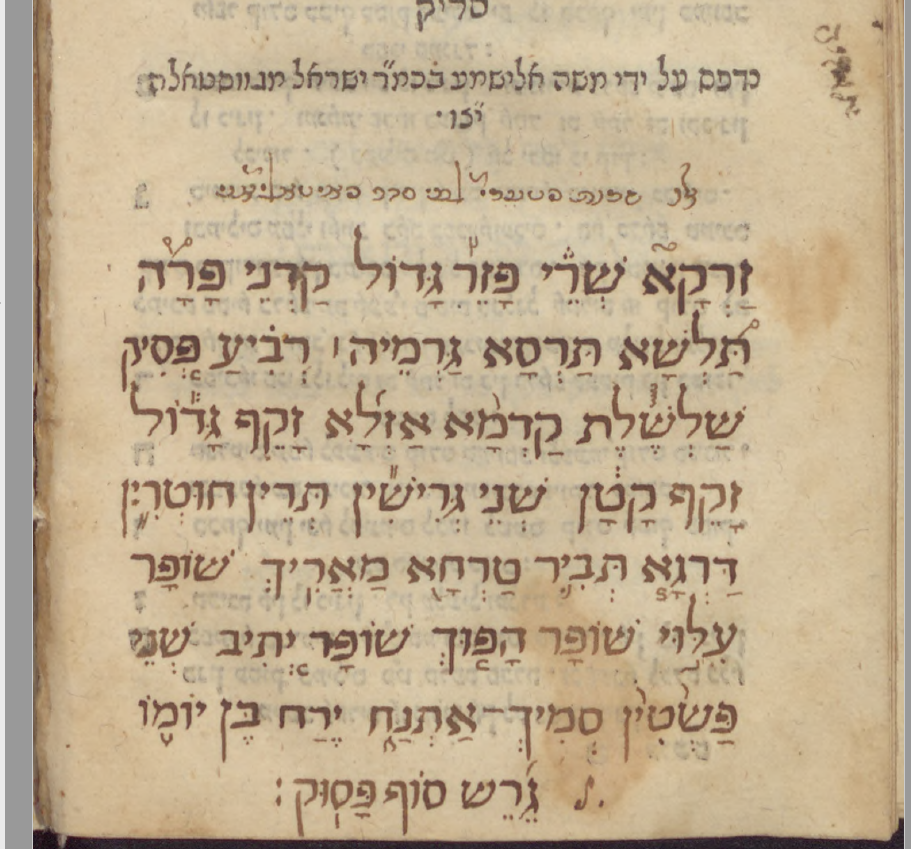 סדיק
נדפס על ידי משה אלישמע בכמ״ר ישראל מגווסטאלה
יצו׳
זַרְקָא שְׁרֵי פָּזֵר גָּדוֹל קַרְנֵי פָרָה
תַּלְשָׁא תַּרְסָא גַּרְמֵיהּ׀ רְבִיעַ פְּסִיק
שַׁלְשֶׁלֶת קַדְמָא אַזְלָא זָקֵף גָּדוֹל
זָקֵף קָטָן שְׁנֵי גְרִישִׁין תְּרֵין חוּטְרִין
דַּרְגָּא תְּבִיר טַרְחָא מַאֲרִיךְ שׁוֹפָר
עִלּוּי שׁוֹפָר הָפוּךְ שׁוֹפָר יְתִיב שְׁנֵי
פַּשְׁטִין סְמִיךְ אֶתְנַח יֶרַח בֶּן יוֹמוֹ
גֶּרֶשׁ סוֹף פָּסוּק: